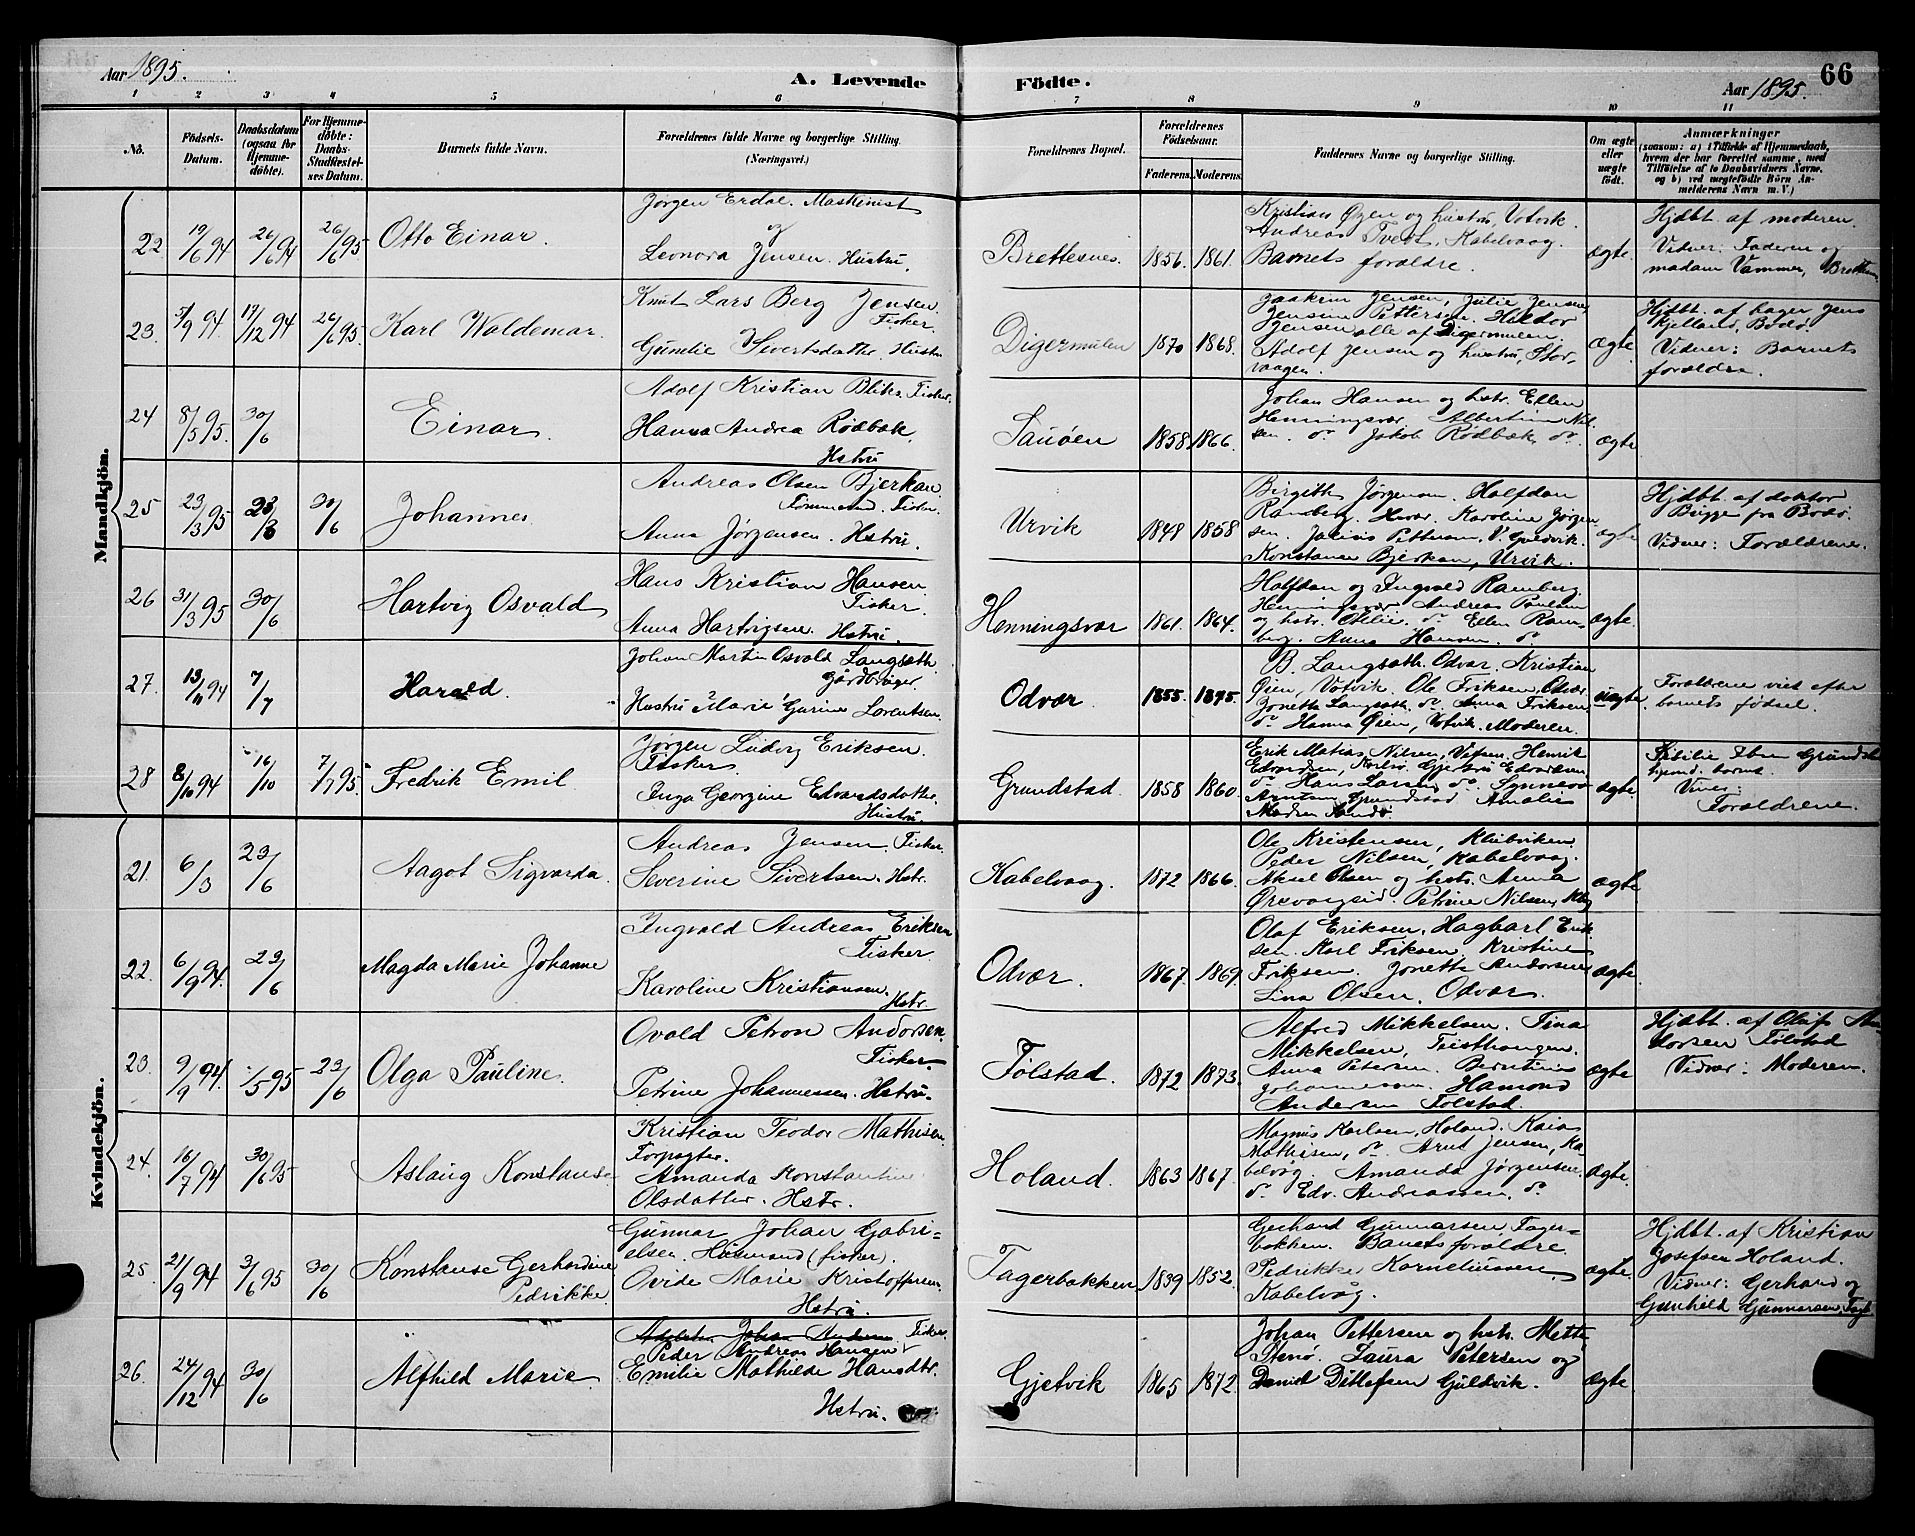 Aar 1895.
A. Levende
Födte.
Aar 1895.
66
1 2 3 4 5 6 7 8 9 10 11
No.
Födsels-
Datum.
Daabsdatum
(ogsaa for
Hjemme-
döbte).
For Hjemme-
döbte:
Daabs-
Stadfæstel-
ses Datum.
Barnets fulde Navn.
Forældrenes fulde Navne og borgerlige Stilling.
(Næringsvei.)
Forældrenes Bopæl.
Forældrenes
Födselsaar.
Faderens. Moderens.
Faddernes Navne og borgerlige Stilling.
Om ægte
eller
uægte
födt.
Anmærkninger
(saasom: a) i Tilfælde af Hjemmedaab,
hvem der har forrettet samme, med
Tilföielse af to Daabsvidners Navne,
og b) ved uægtefödte Börn An-
melderens Navn m. V.)
Mandkjön.
22 19/6 94 26/6 94 26/6 95 Otto Einar.
Jörgen Erdal. Maskinist
og
Leonora Jensen. Hustru.
Brettesnes. 1856. 1861.
Kristian Øyen og hustru, Votvik.
Andreas Tvedt, Kabelvaag.
Barnets forældre.
ægte.
Hjdbt. af moderen.
Vidner: Faderen og
madam Vammer,
23. 5/9 94 17/12 94 26/6 95 Karl Waldemar.
Knut Lars Berg Jensen.
Fisker.
Gunelie Sivertsdatter. Hustru
Digermulen 1870 1868.
Joakim Jensen, Julie Jensen,
Jensine Pettersen. Haldor
Jensen alle af Digermulen
Adolf Jensen og hustru, Stor-
vaagen.
ægte.
Hjdbt. af
Kjelland, Bodö.
Vidner: Barnets
forældre.
24 8/5 95. 30/6 Einar.
Adolf Kristian Bliks. Fisker.
Hanna Andrea Rödbæk,
Hstru
Sauöen 1858 1866.
Johan Hansen og hstr. Ellen
Henningsvær. Albertine Nil-
sen. do Jakob Rödbæk do
ægte
25 23/3 95 28/3 30/6 Johannes
Andreas Olsen Bjerkan
Tömmermd. Fisker.
Anna Jörgensen. Hstru.
Urvik 1848 1858
Birgitte Jörgensen. Halfdan
Ramberg. Hvær. Karoline Jörgen
sen. Julius Pettersen,
Konstance Bjerkan, Urvik.
ægte
Hjdbt. af doktor
Brigge fra Bodö.
Vidner: Forældrene.
26 31/3 95 30/6 Hartvig Osvald
Hans Kristian Hansen.
Fisker.
Anna Hartvigsen. Hstru.
Henningsvær 1861. 1864.
Halfdan og Ingvald Ramberg.
Henningsvær Andreas Paulsen
og hstr. Otelie. do Ellen Ram-
berg. Anna Hansen. do
ægte.
27. 13/11 94 7/7 Harald.
Johan Martin Osvald Langsæth
Gårdbruger.
Hustru Marie Gurine Lorentsen.
Odvær. 1855. 1895.
B. Langsæth. Odvær. Kristian
Öien, Votvik. Ole Eriksen, Odvær.
Jonette Langsæth. do Anna Eriksen.
do Hanna Øien, Votvik. Moderen.
uægte.
Forældrene viet efter
barnets födsel.
28 8/10 94 16/10 7/7 95. Fredrik Emil
Jörgen Ludvig Eriksen.
Fisker.
Inga Georgine Edvardsdatter.
Hustru.
Grundstad. 1858 1860.
Erik Matias Nilsen, Henrik
Edvardsen, Gjertru Edvardsen,
do Hans Larsen do. Synneva
Arntsen Grundstad Amalie
Madsen Sandö.
ægte.
Sicilie
hjemd. barnet.
Vidner:
Forældrene.
Kvindekjön.
21. 6/3 23/6 Aagot Sigvarda.
Andreas Jensen. Fisker.
Severine Sivertsen. Hstr.
Kabelvaag. 1872 1866.
Ole Kristensen, Klubviken.
Peder Nilsen, Kabelvaag.
Aksel Olsen og hstr. Anna
Petrine Nilsen,
ægte
22. 6/9 94. 23/6 Magda Marie Johanne
Ingvald Andreas Eriksen
Fisker.
Karoline Kristiansen.
Hstr.
Odvær. 1867. 1869.
Olaf Eriksen, Hagbart Erik
sen. Karl Eriksen, Kristine
Eriksen. Jonette Andorsen,
Lina Olsen, Odvær.
ægte
23. 9/9 94. /5 95 23/6 Olga Pauline.
Ovald Petron Andorsen.
Fisker.
Petrine Johannessen. Hstru.
Tölstad. 1872 1873.
Alfred Mikkelsen. Tina
Mikkelsen, Teisthaugen.
Anna Petersen. Berntine
Johannessen. Hamond
Andersen Tölstad.
ægte
Hjdbt. af Oluf An-
dorsen Tölstad
Vidner: Moderen.
24. 16/7 94 30/6 95 Aslaug Konstanse
Kristian Teodor Mathisen.
Forpagter.
Amanda Konstantine
Olsdatter. Hstr.
Holand. 1863 1867.
Magnus Karlsen, Holand. Kaia
Mathisen, do. Arnt Jensen, Ka-
belvåg. Amanda Jörgensen.
do. Edv. Andreassen, do
ægte.
25. 21/9 94 3/6 95 30/6 Konstanse Gerhardine
Pedrikke.
Gunnar Johan Gabri-
elsen. Husmand (fisker).
Ovide Marie Kristoffersen.
Hstru.
Fagerbakken 1839 1852.
Gerhard Gunnarsen, Fager-
bakken. Banets forældre.
Pedrikke Korneliussen
Kabelvåg.
ægte.
Hjdbt. af Kristian
Josefsen Holand.
Vidner: Gerhard og
Gunhild Gunnarsen, Fagb.
26. 24/12 94 30/6 Alfhild Marie
Johan Andersen. Fisker.
Peder Andreas Hansen
Emilie Mathilde Hansdtr.
Hstru.
Gjetvik 1865 1872.
Johan Pettersen og hstr. Mette,
Stenö. Laura Petersen og
Daniel Ditlefsen Guldvik.
ægte.